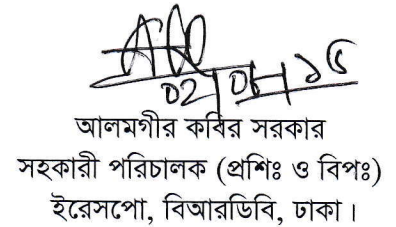 ০২/০৮/১৫
আলমগীর কবির সরকার
সহকারী পরিচালক (প্রশিঃ ও বিপঃ)
ইরেসপো, বিআরডিবি, ঢাকা।